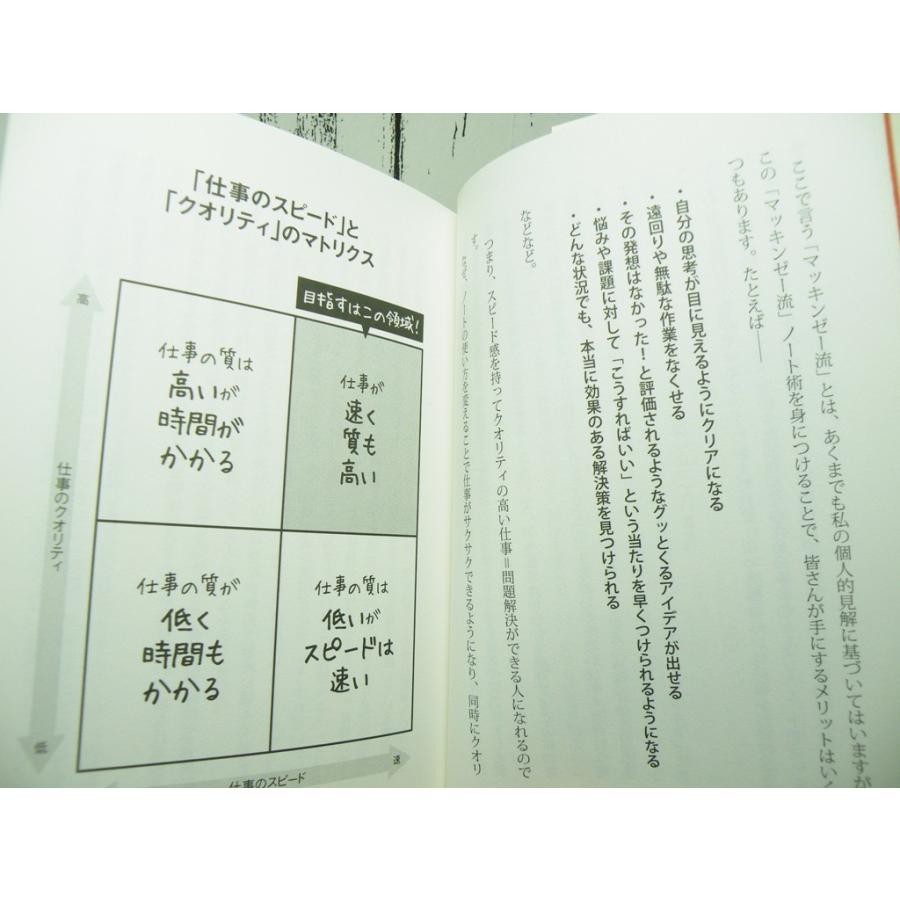 ここで言う「マッキンゼー流」とは、あくまでも私の個人的見解に基づいてはいますが
この「マッキンゼー流」ノート術を身につけることで、皆さんが手にするメリットはいく
つもあります。たとえば――
・自分の思考が目に見えるようにクリアになる
・遠回りや無駄な作業をなくせる
・その発想はなかった！と評価されるようなグッとくるアイデアが出せる
・悩みや課題に対して「こうすればいい」という当たりを早くつけられるようになる
・どんな状況でも、本当に効果のある解決策を見つけられる
などなど。
つまり、スピード感を持ってクオリティの高い仕事＝問題解決ができる人になれるので
す。
ノートの使い方を変えることで仕事がサクサクできるようになり、同時にクオリ
「仕事のスピード」と
「クオリティ」のマトリクス
目指すはこの領域！
高
仕事のクオリティ
低
仕事の質は
高いが
時間が
かかる
仕事が
速く
質も
高い
仕事の質が
低く
時間も
かかる
仕事の質は
低いが
スピードは
速い
仕事のスピード
速